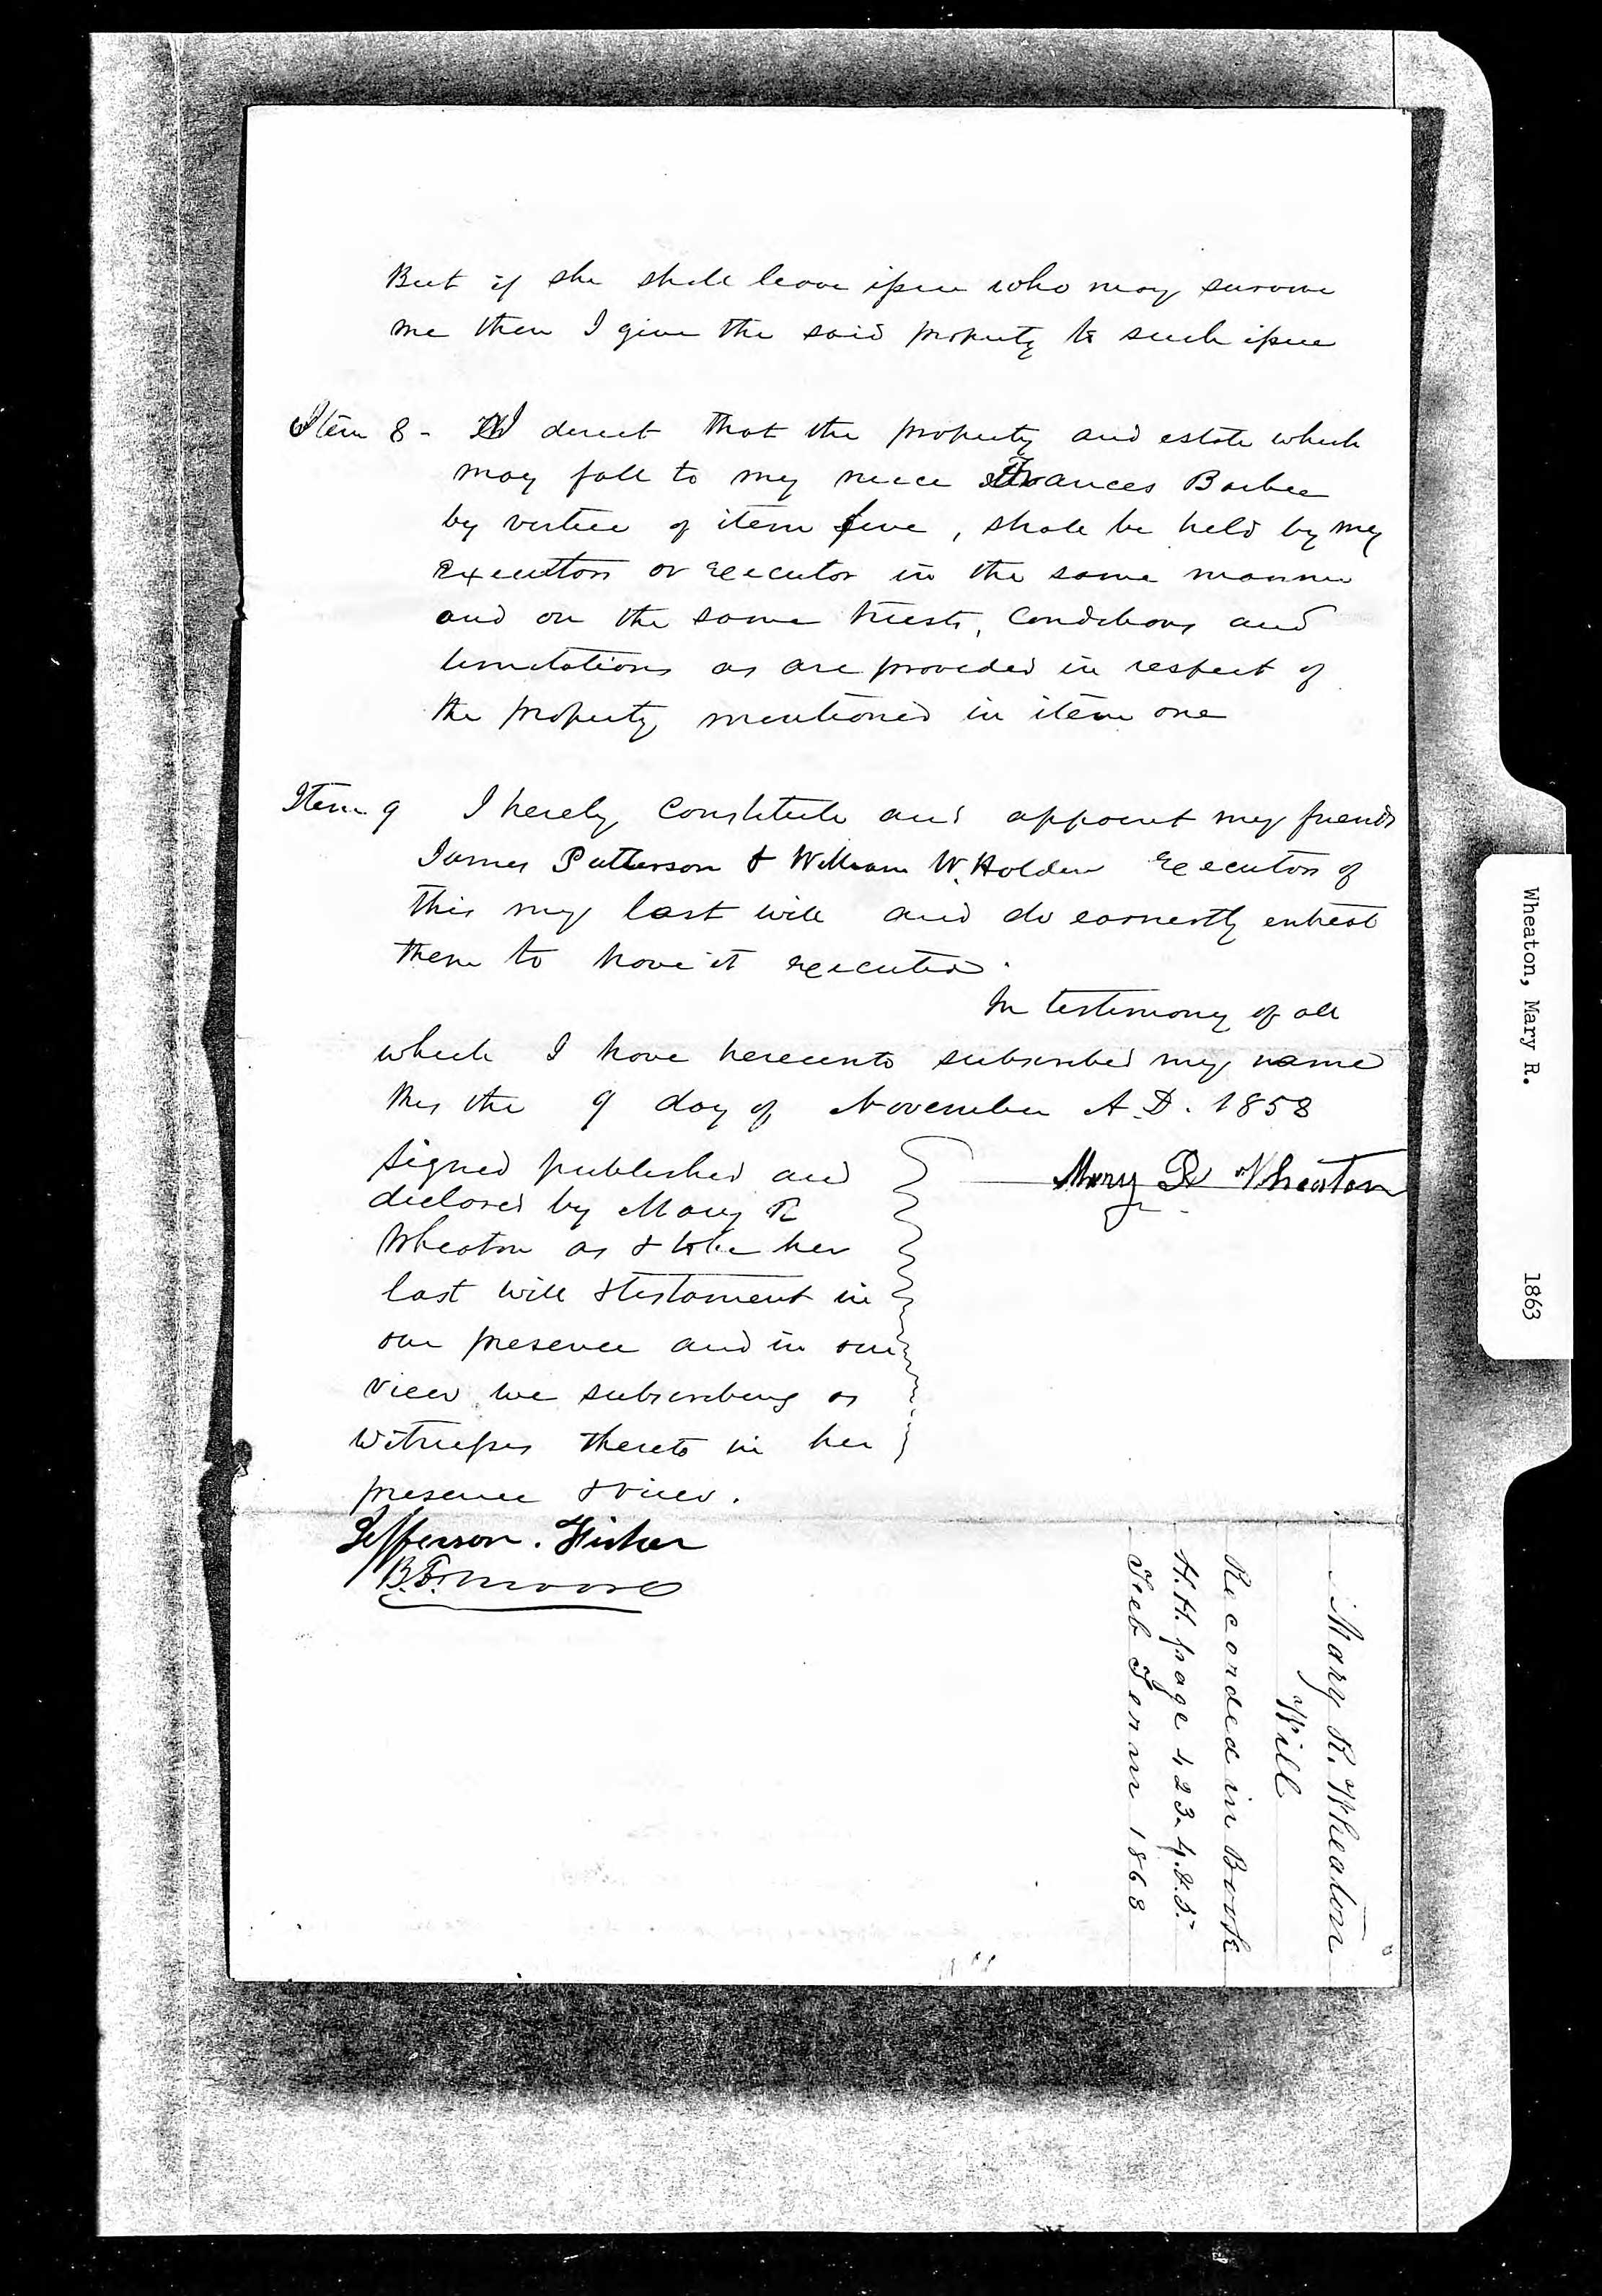 But if she shall leave issue who may survive
me then I give the said property to such issue
Item 8 - I direct that the property and estate which
may fall to my niece Frances Barbee
by virtue of item five, shall be held by my
Executors or executor in the same manner
and on the same trusts, conditions and
limitations as are provided in respect of
the property mentioned in item one
Item 9 I hereby constitute and appoint my friends
James Patterson & William W. Holden executors of
this my last will and do earnestly entreat
them to have it executed.
In testimony of all
which I have hereunto subscribed my name
this the 9 day of November A.D. 1858
Mary R Wheaton
Signed published and
declared by Mary R
Wheaton as & to be her
last will & testament in
our presence and in our
view we subscribing as
witnesses thereto in her
presence & view.
Jefferson. Fisher
B.F. Moore
Mary R. Wheaton
Will
Recorded in Book
H.H. page 423. 4. & 5.
Feb Term 1863
Wheaton, Mary R. 1863